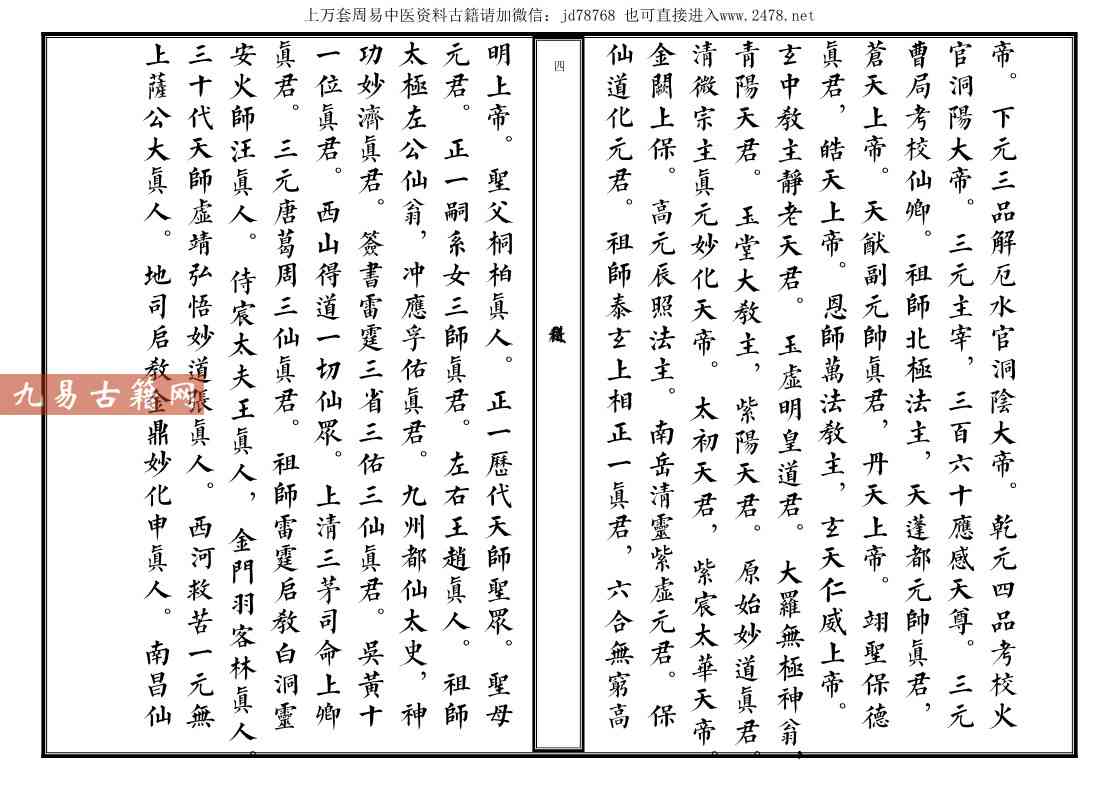 上万套周易中医资料古籍请加微信：jd78768 也可直接进入www.2478.net
帝。下元三品解厄水官洞陰大帝。乾元四品考校火
官洞陽大帝。三元主宰，三百六十應感天尊。三元
曹局考校仙卿。祖師北極法主，天蓬都元帥眞君，
蒼天上帝。天猷副元帥眞君，丹天上帝。翊聖保德
眞君，皓天上帝。恩師萬法教主，玄天仁威上帝。
玄中教主靜老天君。玉虛明皇道君。大羅無極神翁，
青陽天君。玉堂大教主，紫陽天君。原始妙道眞君。
清微宗主眞元妙化天帝。太初天君，紫宸太華天帝。
金闕上保。高元辰照法主。南岳清靈紫虛元君。保
仙道化元君。祖師泰玄上相正一眞君，六合無窮高
四
明上帝。聖父桐柏眞人。正一歷代天師聖眾。聖母
元君。正一嗣系女三師眞君。左右王趙眞人。祖師
太極左公仙翁，冲應孚佑眞君。九州都仙太史，神
功妙濟眞君。簽書雷霆三省三佑三仙眞君。吳黃十
一位眞君。西山得道一切仙眾。上清三茅司命上卿
眞君。三元唐葛周三仙眞君。祖師雷霆启教白洞靈
安火師汪眞人。侍宸太夫王眞人，金門羽客林眞人。
三十代天師虛靖弘悟妙道張眞人。西河救苦一元無
上薩公大眞人。地司启教金鼎妙化申眞人。南昌仙
九易古籍网